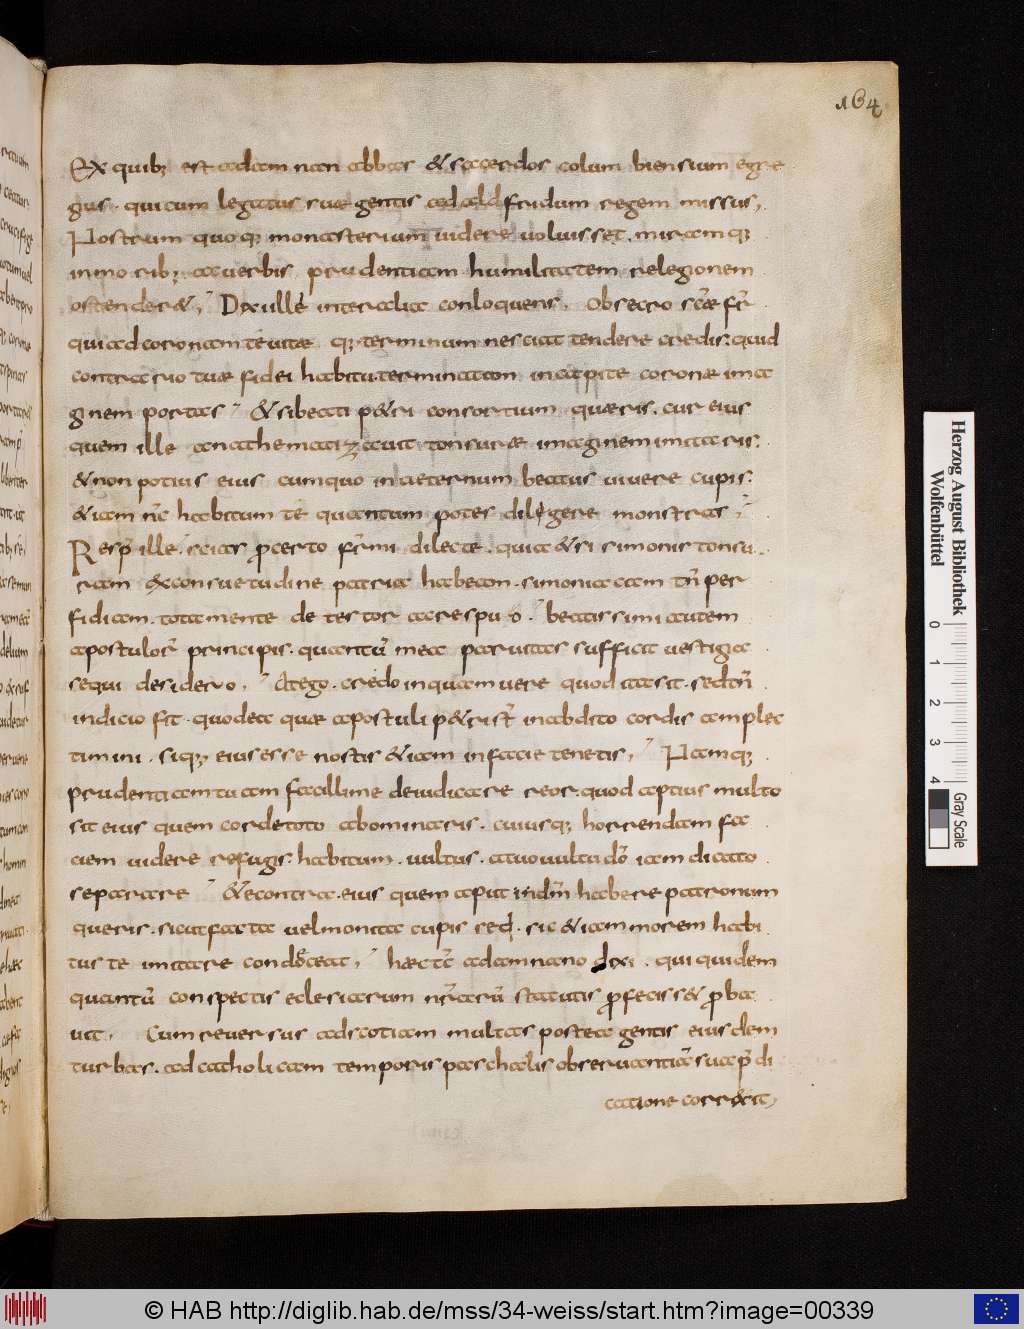 164
Ex quib; est adam nan abbas & sacerdos colum biensium egre
gius. qui cum legatus suae gentis ad aldfridum regem missus,
Nostrum quoq; monasterium videre voluisset. miramq;
in morib; ac verbis prudentiam humilitatem relegionem
ostender&, Dixi illi inter alia conloquens. Obsecro sc̄ae fr̄
qui ad coronam te vitae q; terminum nesciat tendere credis. quid
contrario tuae fidei habitu terminatam in capite coronae ima
ginem portas & si beati p&ri consortium quaeris. cur eius
quem ille anathematizavit tonsurae imaginem imitaris.
& non potius eius cum quo in aeternum beatus vivere cupis.
& iam nc̄ habitum te quantum potes diligere monstras,
Resp̄ ille. scias pcerto fr̄ mi dilecte. quia & si simonis tonsu
ram ex consuetudine patria habeam. simoniacam tn̄ per
fidiam. tota mente de testor ac respuo. beatissimi autem
apostulor̄ principis. quantū mea parvitas sufficit vestigia
sequi desidero, At ego. credo inquam vere quod ita sit. sed tn̄
indicio sit. quod ea quae apostuli p&ri st̄ in abdito cordis amplec
timini. siq; eius esse nostis & iam in facie tenetis, Namq;
prudentiam tuam facillime deiudicare reor. quod aptius multo
sit eius quem corde toto abominaris. cuiusq; horrendam fa
ciem videre refugis. habitum. vultus. a tuo vultu dō iam dicato
separare & econtra. eius quem aput indm̄ habere patronum
queris. sicut facta vel monita cupis seq. sic & iam morem habi
tus te imitare condoceat, haec tc̄ adamnano dixi. qui quidem
quantū conspectis eclesiarum nr̄arū statutis pfecisset pba
vit, Cum reversus ad scotiam multas postea gentis eiusdem
turbas. ad catholicam temporis paschalis observantiā sua p̄di
catione correxit,
Herzog August Bibliothek
Wolfenbüttel
0 1 2 3 4
Gray Scale
© HAB http://diglib.hab.de/mss/34-weiss/start.htm?image=00339